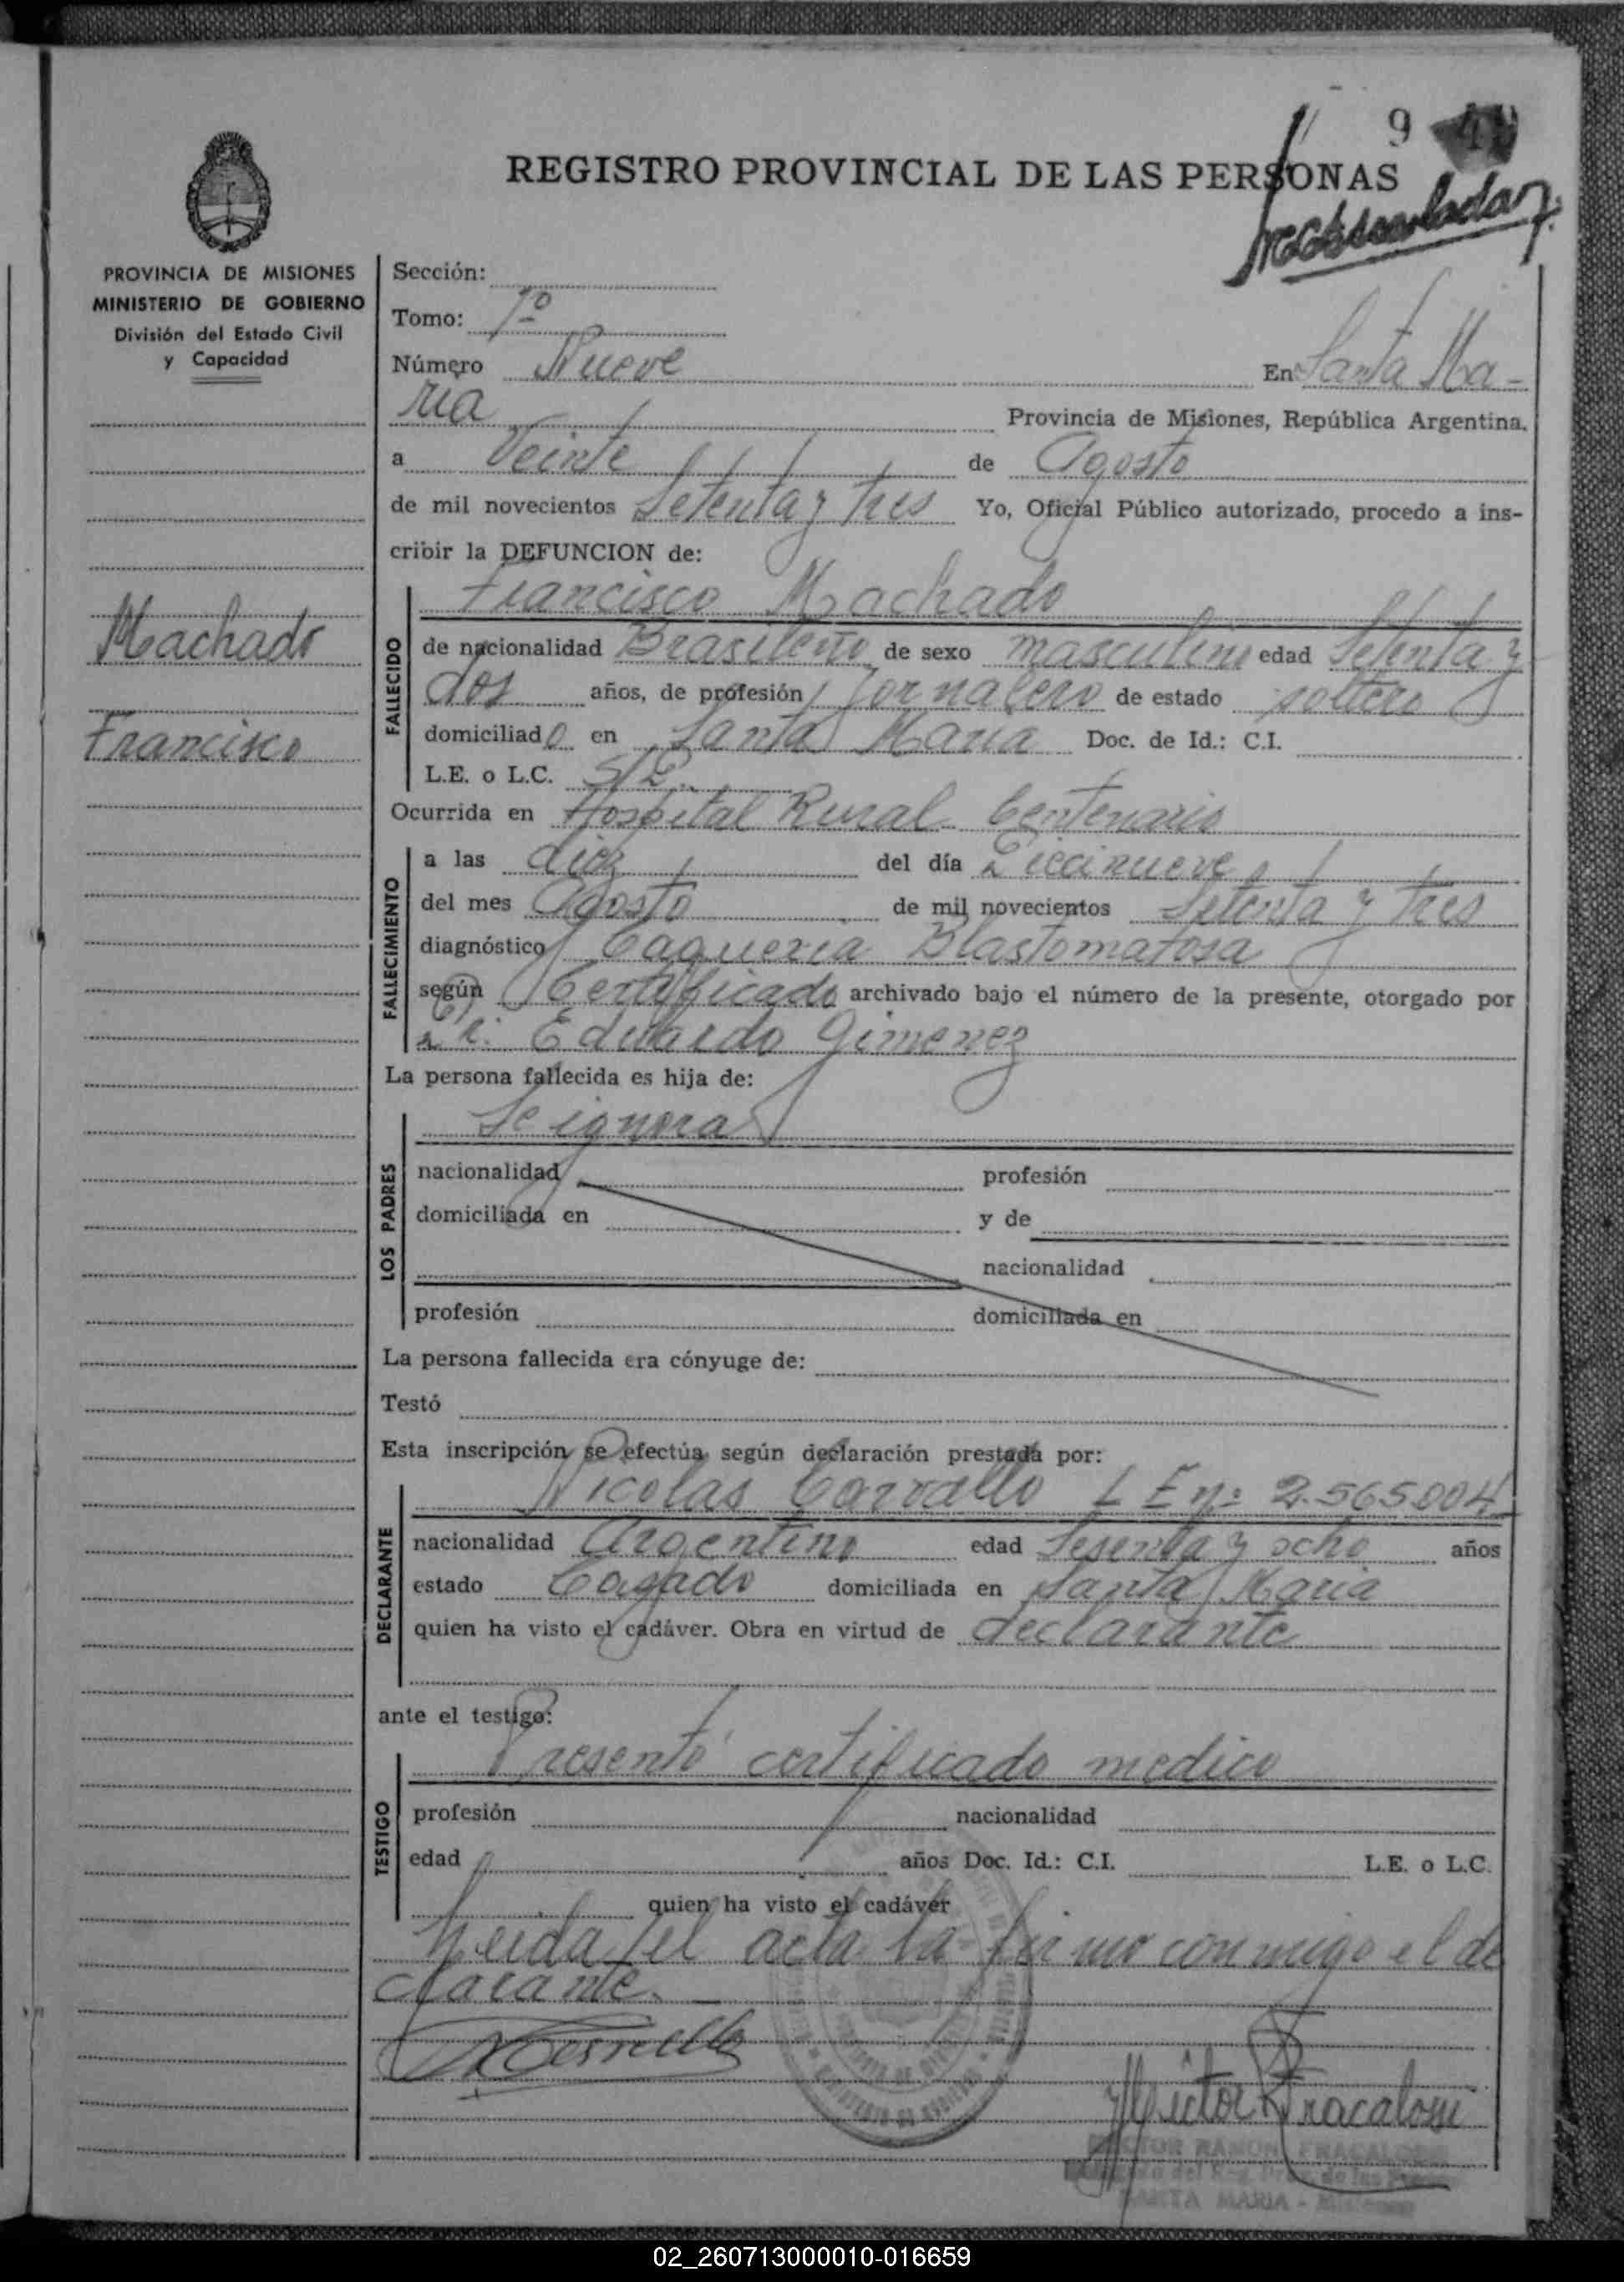 9
REGISTRO PROVINCIAL DE LAS PERSONAS
PROVINCIA DE MISIONES
MINISTERIO DE GOBIERNO
División del Estado Civil
y Capacidad
Machado
Francisco
Sección:
Tomo: 1º
Número Nueve En Santa Ma-
ria Provincia de Misiones, República Argentina.
a Veinte de Agosto
de mil novecientos Setenta y tres Yo, Oficial Público autorizado, procedo a ins-
cribir la DEFUNCION de:
FALLECIDO
Francisco Machado
de nacionalidad Brasileño de sexo masculino edad Setenta y
dos años, de profesión Jornalero de estado soltero
domiciliado en Santa Maria Doc. de Id.: C.I.
L.E. o L.C.
Ocurrida en Hospital Rural Centenario
FALLECIMIENTO
a las diez del día Diecinueve
del mes Agosto de mil novecientos Setenta y tres
diagnóstico Caquexia Blastomatosa
según Certificado archivado bajo el número de la presente, otorgado por
Dr. Eduardo Gimenez
La persona fallecida es hija de:
LOS PADRES
Se ignora
nacionalidad profesión
domiciliada en y de
nacionalidad
profesión domiciliada en
La persona fallecida era cónyuge de:
Testó
Esta inscripción se efectúa según declaración prestada por:
DECLARANTE
Nicolas Carvallo L E nº 2.565.004
nacionalidad Argentino edad Sesenta y ocho años
estado Casado domiciliada en Santa Maria
quien ha visto el cadáver. Obra en virtud de declarante
ante el testigo:
TESTIGO
Presentó certificado medico
profesión nacionalidad
edad años Doc. Id.: C.I. L.E. o L.C.
quien ha visto el cadáver
Leida el acta la firmo conmigo el de
clarante.
Hector R Fracalossi
HECTOR RAMON FRACALOSSI
SANTA MARIA - Misiones
02_260713000010-016659